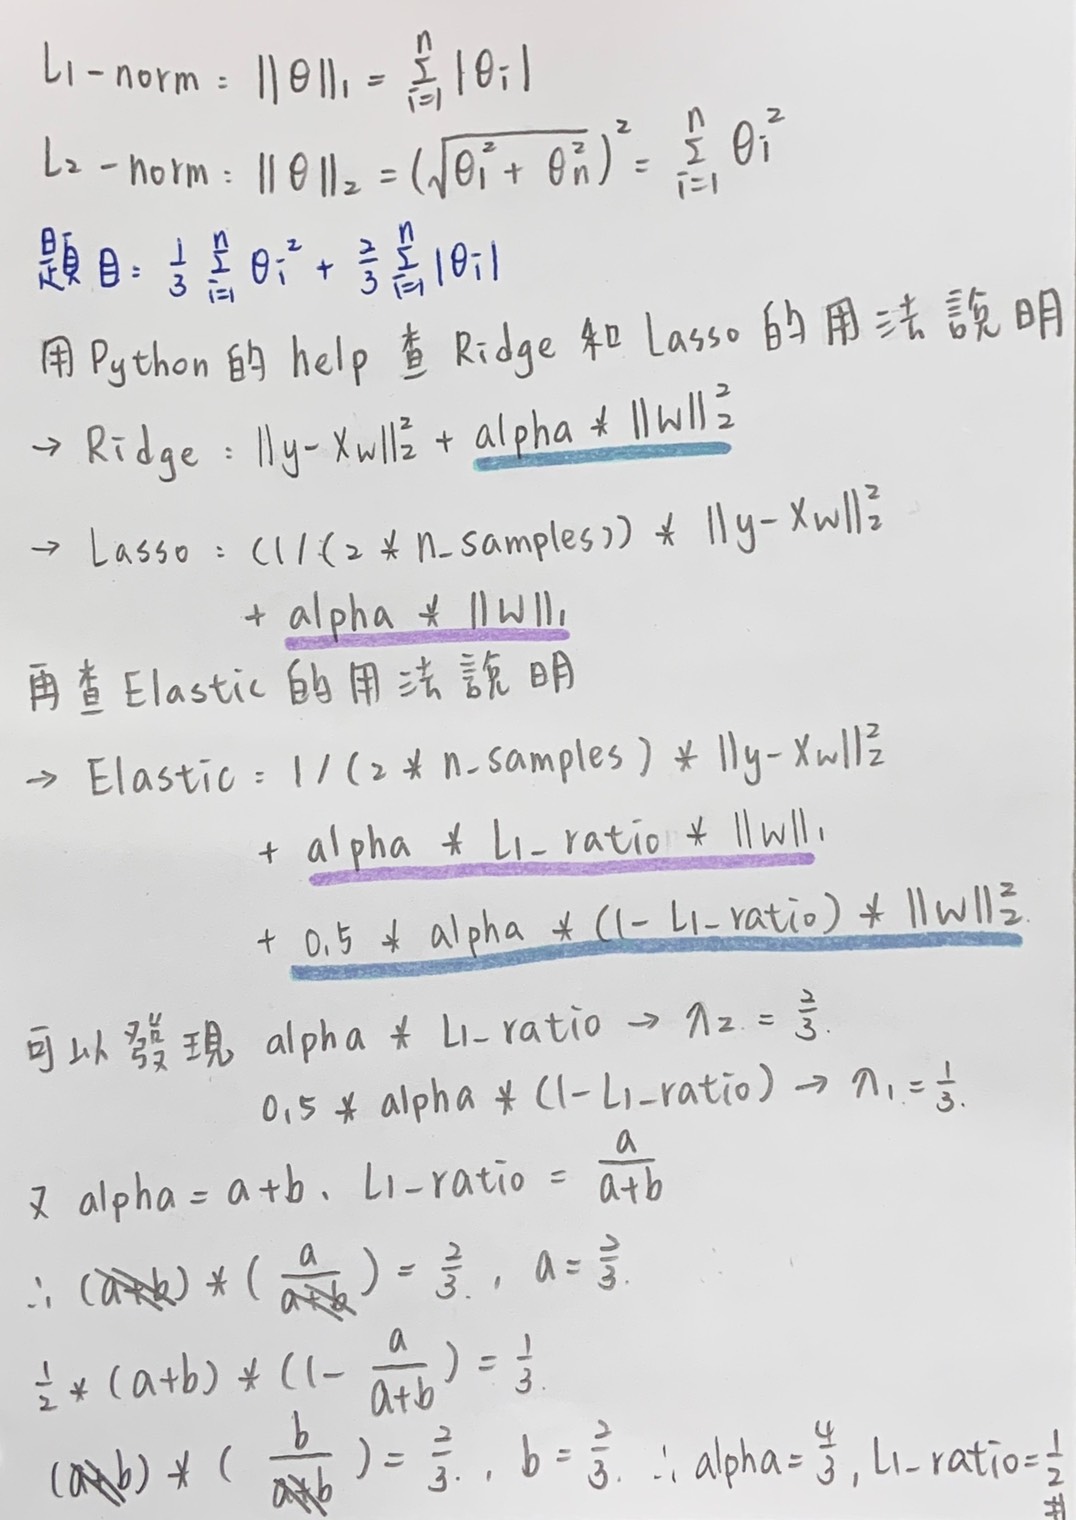 L1-norm: ||θ||₁ = Σⁿᵢ₌₁ |θᵢ|
L2-norm: ||θ||₂ = (√(θᵢ² + θₙ²))² = Σⁿᵢ₌₁ θᵢ²
題目: 1/3 Σⁿᵢ₌₁ θᵢ² + 2/3 Σⁿᵢ₌₁ |θᵢ|
用 Python 的 help 查 Ridge 和 Lasso 的用法說明
→ Ridge : ||y-Xw||²₂ + alpha * ||w||²₂
→ Lasso : (1/(2 * n_samples)) * ||y-Xw||²₂
+ alpha * ||w||₁
再查 Elastic 的用法說明
→ Elastic : 1/(2 * n_samples) * ||y-Xw||²₂
+ alpha * L1_ratio * ||w||₁
+ 0.5 * alpha * (1-L1_ratio) * ||w||²₂.
可以發現 alpha * L1_ratio → λ₂ = 2/3.
0.5 * alpha * (1-L1_ratio) → λ₁ = 1/3.
又 alpha = a+b、L1_ratio = a/(a+b)
∴ (a+b) * (a/(a+b)) = 2/3., a = 2/3.
1/2 * (a+b) * (1- a/(a+b)) = 1/3.
(a+b) * (b/(a+b)) = 2/3., b = 2/3. ∴ alpha = 4/3, L1_ratio = 1/2 #